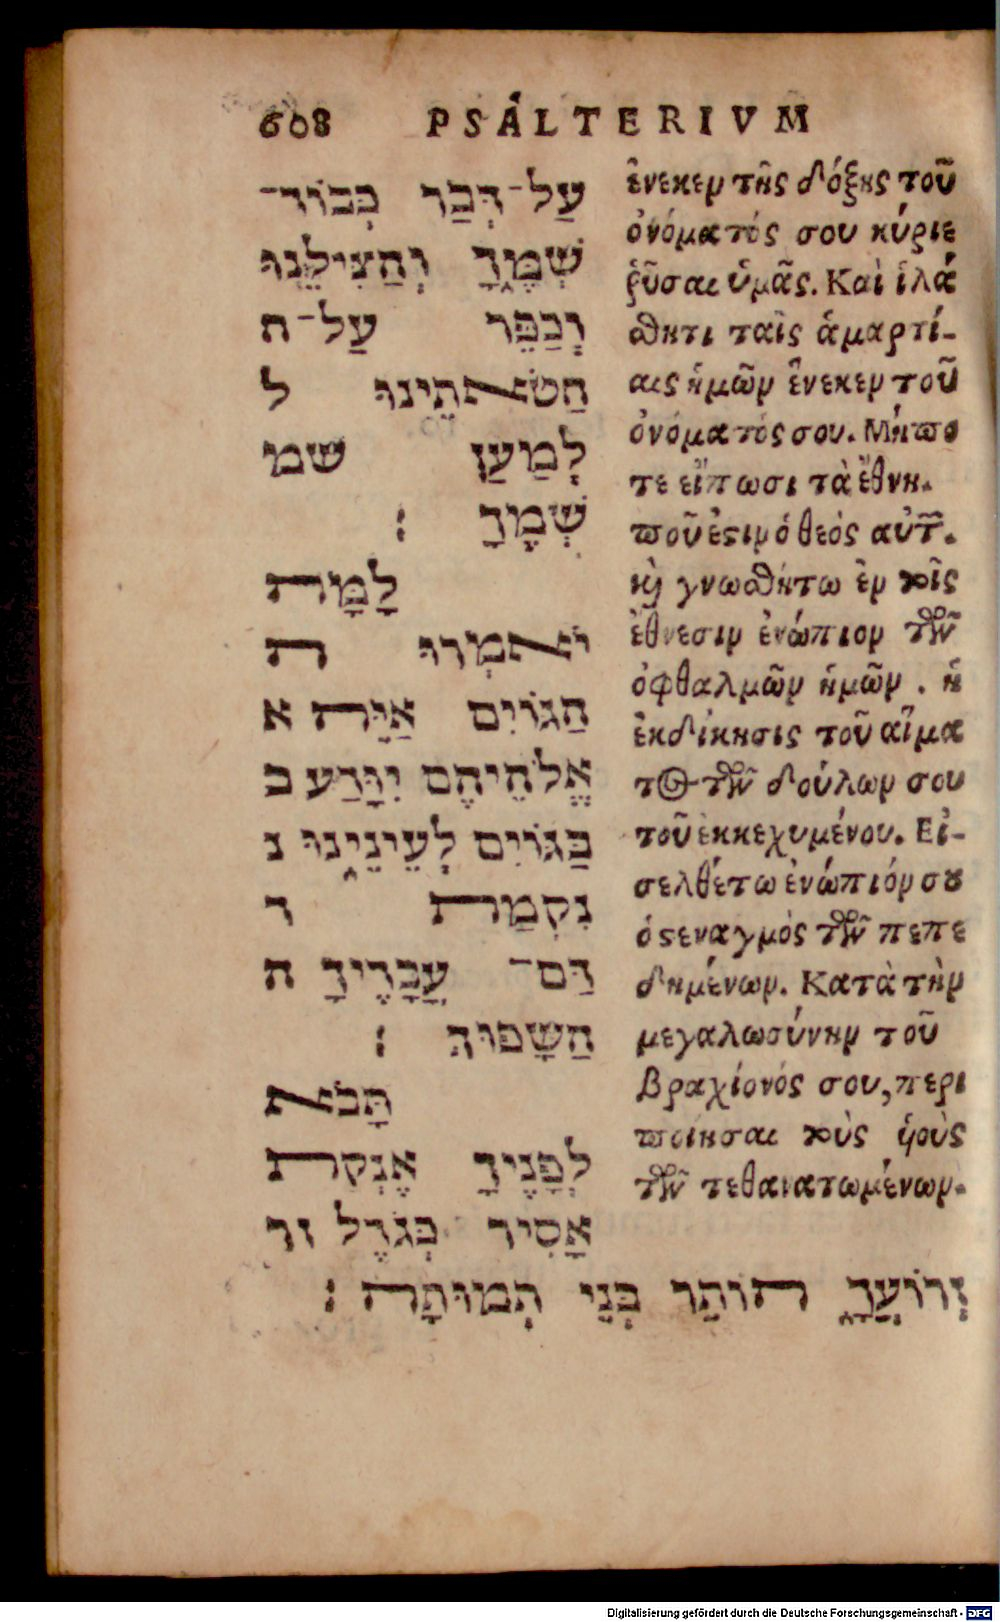 608 PSALTERIVM
עַל־דְּבַר כְּבוֹד־
שְׁמֶךָ וְהַצִּילֵנוּ
וְכַפֵּר עַל־ח
חַטֹּאתֵינוּ ל
לְמַעַן שמ
שְׁמֶךָ ׃
לָמָּה
יֹאמְרוּ ה
הַגּוֹיִם אַיֵּה א
אֱלֹהֵיהֶם יִוָּדַע ב
בַּגּוֹיִם לְעֵינֵינוּ נ
נִקְמַת ד
דַּם־ עֲבָדֶיךָ ה
הַשָּׁפוּךְ ׃
תָּבוֹא
לְפָנֶיךָ אֶנְקַת
אָסִיר כְּגֹדֶל זר
זְרוֹעֲךָ הוֹתֵר בְּנֵי תְמוּתָה ׃
ἕνεκεν τῆς δόξης τοῦ
ὀνόματός σου κύριε
ῥῦσαι ὑμᾶς. Καὶ ἱλά
σθητι ταῖς ἁμαρτί-
αις ἡμῶν ἕνεκεν τοῦ
ὀνόματός σου. Μήπο
τε εἴπωσι τὰ ἔθνη.
ποῦ ἐστιν ὁ θεός αὐτῶν.
καὶ γνωσθήτω ἐν τοῖς
ἔθνεσιν ἐνώπιον τῶν
ὀφθαλμῶν ἡμῶν. ἡ
ἐκδίκησις τοῦ αἵμα
τος τῶν δούλων σου
τοῦ ἐκκεχυμένου. Εἰ-
σελθέτω ἐνώπιόν σου
ὁ στεναγμὸς τῶν πεπε
δημένων. Κατὰ τὴν
μεγαλωσύνην τοῦ
βραχίονός σου, περι
ποίησαι τοὺς ἡοὺς
τῶν τεθανατωμένων.
Digitalisierung gefördert durch die Deutsche Forschungsgemeinschaft - DFG